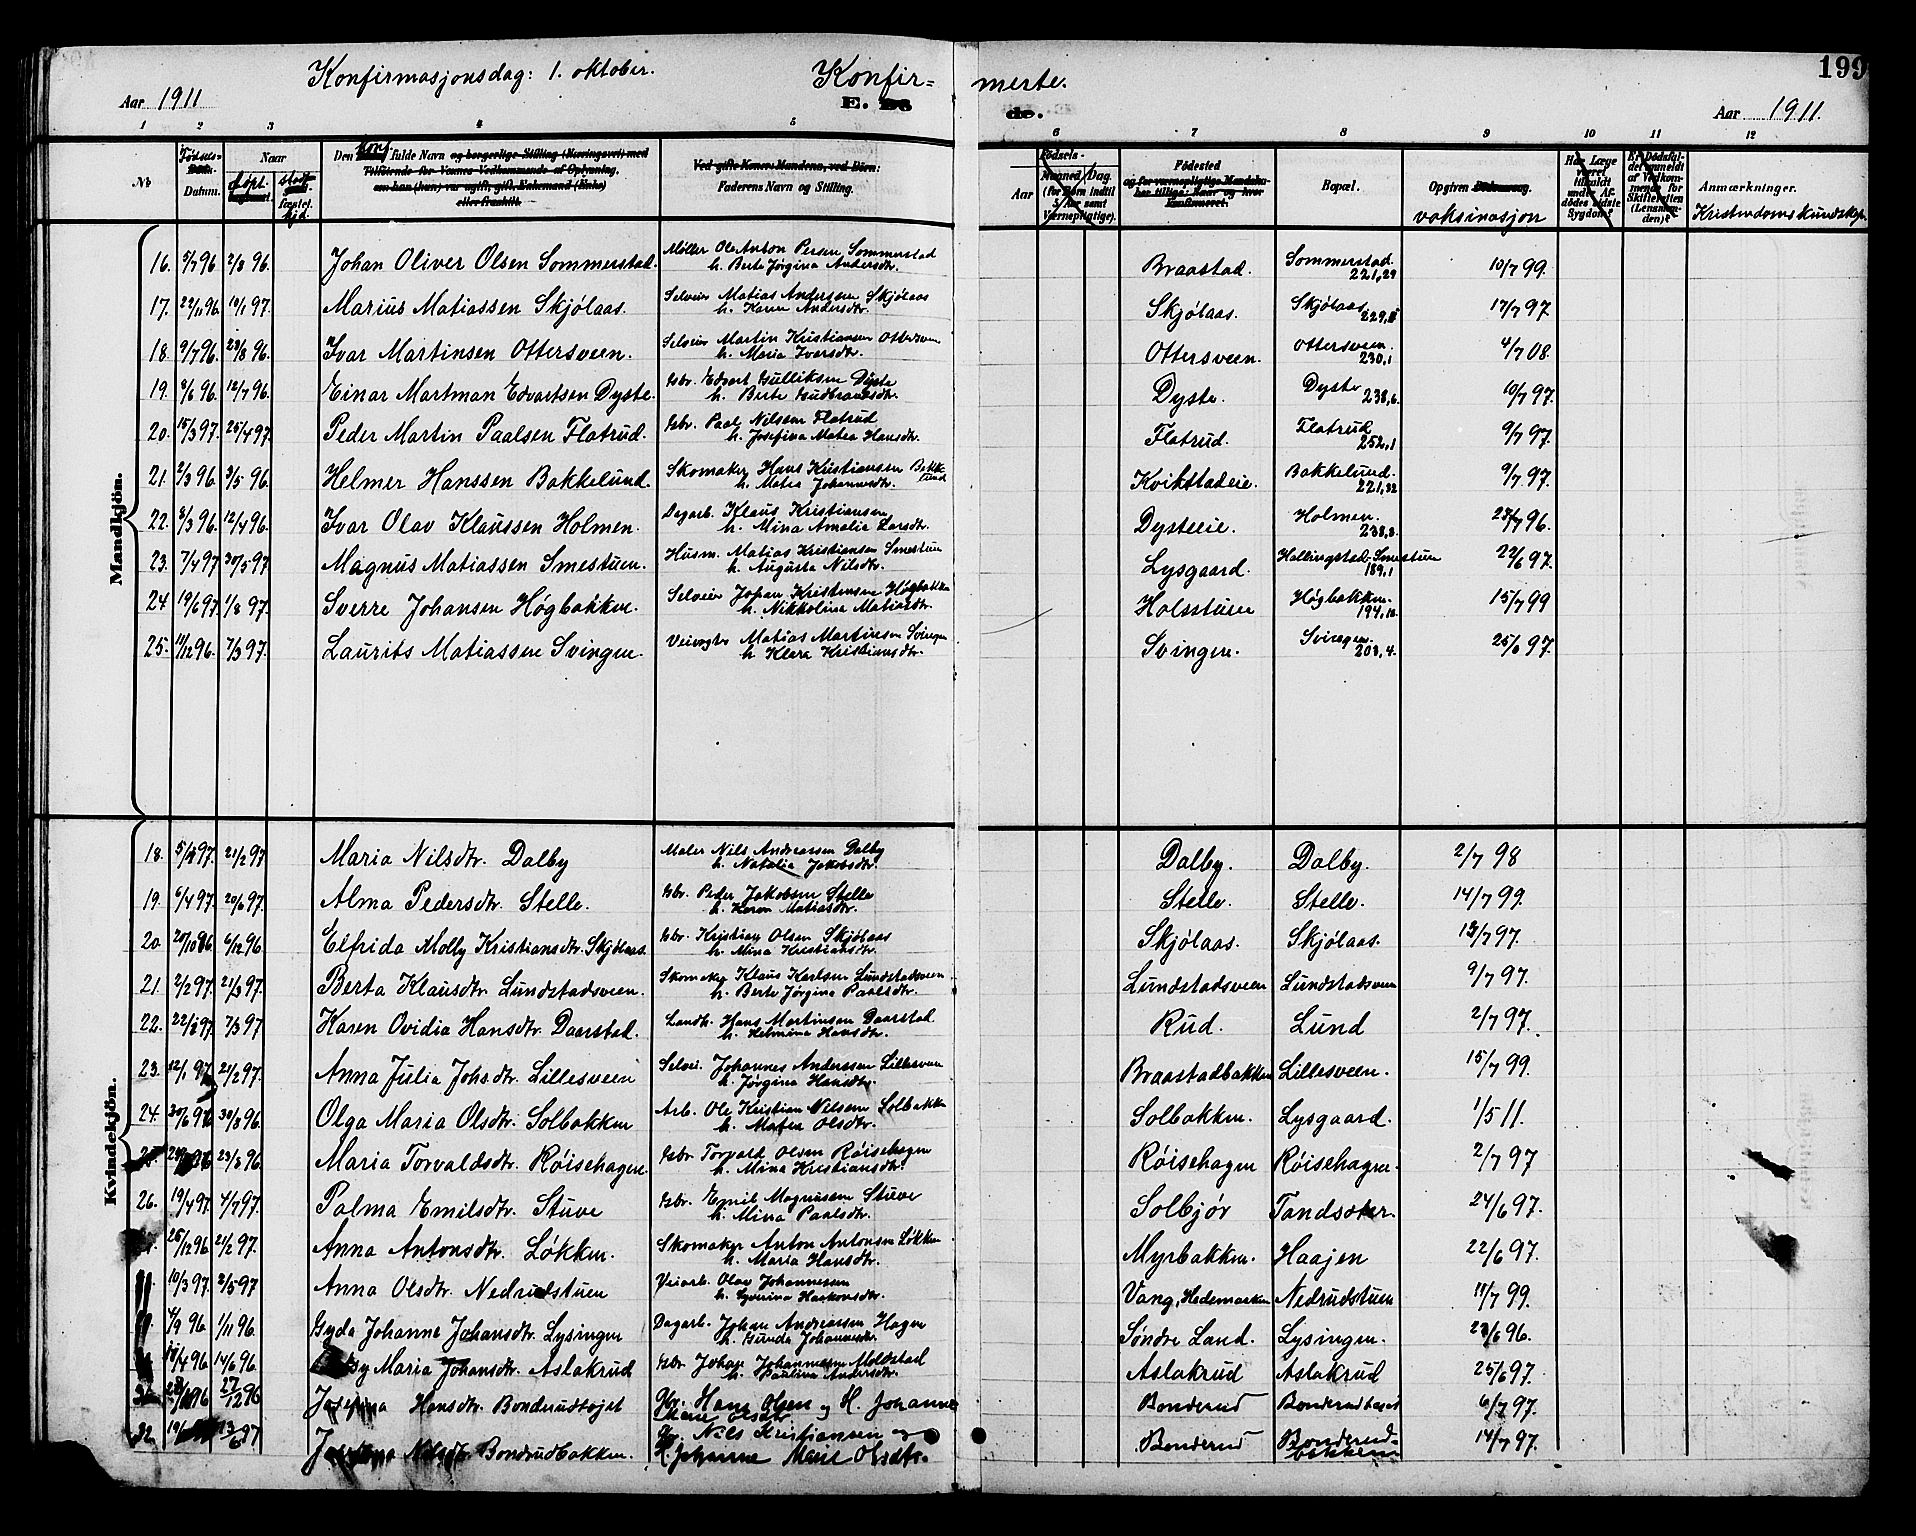 Konfirmasjonsdag: 1. oktober.
Konfir-
merte.
199
Aar 1911
E.
de.
Aar 1911.
1 2 3 4 5 6 7 8 9 10 11 12
No.
Fødsels-
Datum.
Naar
døpt.
Den fulde Navn og borgerlige Stilling (Næringsvei) med
eller fraskilt.
Ved gifte Koner: Mandens, ved Børn:
Faderens Navn og Stilling.
Aar
Fødsels-
Maaned Dag.
(for Børn indtil
5 Aar samt
Værnepligtige).
Fødested
Bopæl.
Opgiven
vaksinasjon
Har Læge
været
tilkaldt
under Af-
dødes sidste
Sygdom?
Er Dødsfal-
det anmeldt
af Vedkom-
mende for
Skifteretten
(Lensman-
den)?
Anmærkninger.
Kristendomskundskap.
Mandkjön.
16. 5/7 96 2/8 96. Johan Oliver Olsen Sommerstad. Møller Ole Anton Persen Sommerstad
h. Berte Jørgina Andersdtr. Braastad. Sommerstad. 221,29 10/7 99.
17. 22/11 96. 10/1 97. Marius Matiassen Skjølaas. Selveier Matias Andersen Skjølaas
h. Karen Andersdtr. Skjølaas. Skjølaas 17/7 97.
18. 9/7 96. 23/8 96. Ivar Martinsen Ottersveen. Selveier Martin Kristiansen Ottersveen
h. Maria Iversdtr. Ottersveen. Ottersveen. 230,1 4/7 08.
19. 8/6 96. 12/7 96. Einar Martman Edvartsen Dyste. Gbr. Edvart Gulliksen Dyste
h. Berte Gudbrandsdtr. Dyste. Dyste 238,6. 10/7 97.
20. 15/3 97. 25/4 97. Peder Martin Paalsen Flatrud. Gbr. Paal Nilsen Flatrud
h. Josefina Matea Hansdtr. Flatrud. Flatrud 252,1 9/7 97.
21. 2/3 96. 3/5 96. Helmer Hanssen Bakkelund. Skomaker Hans Kristiansen Bakkelund
h. Matea Johannesdtr. Kvikstadeie. Bakkelund. 221,32 9/7 97.
22. 8/3 96. 12/4 96. Ivar Olav Klaussen Holmen. Dagarb. Klaus Kristiansen
h. Mina Amalia Larsdtr. Dysteeie. Holmen. 238,8. 27/7 96.
23. 7/4 97 30/5 97 Magnus Matiassen Smestuen. Husm. Matias Kristiansen Smestuen
h. Augusta Nilsdtr. Lysgaard. Hallingstad, Smestuen 189,1 22/6 97.
24 19/6 97. 1/8 97. Sverre Johansen Høgbakken. Selveier Johan Kristensen Høgbakken
h. Nikkoline Matiasdtr. Holsstuen Høgbakken. 194,10. 15/7 99
25. 11/12 96. 7/3 97. Laurits Matiassen Svingen. Veivogter Matias Martinsen Svingen
h. Klara Kristiansdtr. Svingen. Svingen. 208,4. 25/6 97.
Kvindekjön.
18. 97. 21/2 97 Maria Nilsdtr. Dalby Maler Nils Andreassen Dalby
h. Natalia Jakobsdtr. Dalby. Dalby. 2/7 98
19. 6/4 97. 20/6 97. Alma Pedersdtr. Stelle. Gbr. Peder Jakobsen Stelle
h. Karen Matiasdtr. Stelle. Stelle. 14/7 99.
20. 20/10 96 6/12 96 Elfrida Molly Kristiansdtr. Skjølaas. Gbr. Kristian Olsen Skjølaas
h. Mina Kristiansdtr. Skjølaas. Skjølaas. 13/7 97.
21. 2/2 97. 21/3 97. Berta Klausdtr. Lundstadsveen. Skomaker Klaus Karlsen Lundstadsveen
h. Berte Jørgina Paalsdtr. Lundstadsveen Lundstadsveen 9/7 97.
22. 97. 7/3 97 Karen Ovidia Hansdtr. Daarstad. Landh. Hans Martinsen Daarstad
h. Helmina Hansdtr. Rud. Lund 2/7 97.
23. 12/1 97 21/2 97. Anna Julia Johsdtr. Lillesveen Selvei. Johannes Anderssen Lillesveen
h. Jørgina Hansdtr. Braastadbakken Lillesveen. 15/7 99.
24. 30/6 96 30/8 96. Olga Maria Olsdtr. Solbakken Arb. Ole Kristian Nilsen Solbakken
h. Matea Olsdtr. Solbakken. Lysgaard. 1/5 11.
25. 96 23/8 96. Maria Torvaldsdtr. Røisehagen. Gbr. Torvald Olsen Røisehagen
h. Mina Kristiansdtr. Røisehagen Røisehagen. 2/7 97
26. 19/4 97. 4/7 97. Palma Emilsdtr. Stuve Gbr. Emil Magnussen Stuve
h. Mina Paalsdtr. Solbjør Tandsæter. 24/6 97.
25/12 96. 21/2 97. Anna Antonsdtr. Løkken. Skomaker Anton Antonsen Løkken.
h. Maria Hansdtr. Myrbakken. Haajen 22/6 97.
10/3 97. 2/5 97 Anna Olsdtr. Nedrudstuen Veiarb. Olav Johannesen
h. Haakonsdtr. Vang, Hedemarken Nedrudstuen 11/7 99.
4/9 96. 1/11 96. Gyda Johanne Johansdtr. Lysingen Dagarb. Johan Andreassen Hagen
h. Gunda Johannesdtr. Søndre Land. Lysingen. 6 96.
4 96 14/6 96. Maria Johansdtr. Aslakrud Gbr. Johan Johannesen Moldstad
h. Paulina Andersdtr. Aslakrud Aslakrud 25/6 97.
96 27/12 96 Hansdtr. Bonderudtojet Gbr. Hans Olsen og H. Johanne
Marie Olsdtr. Bonderud 6/7 97.
32. 13/6 97 Nilsdtr. Bondrudbakken. Gbr. Nils Kristiansen og
H. Johanne Marie Olsdtr. Bonderud Bonderud-
bakken 14/7 97.